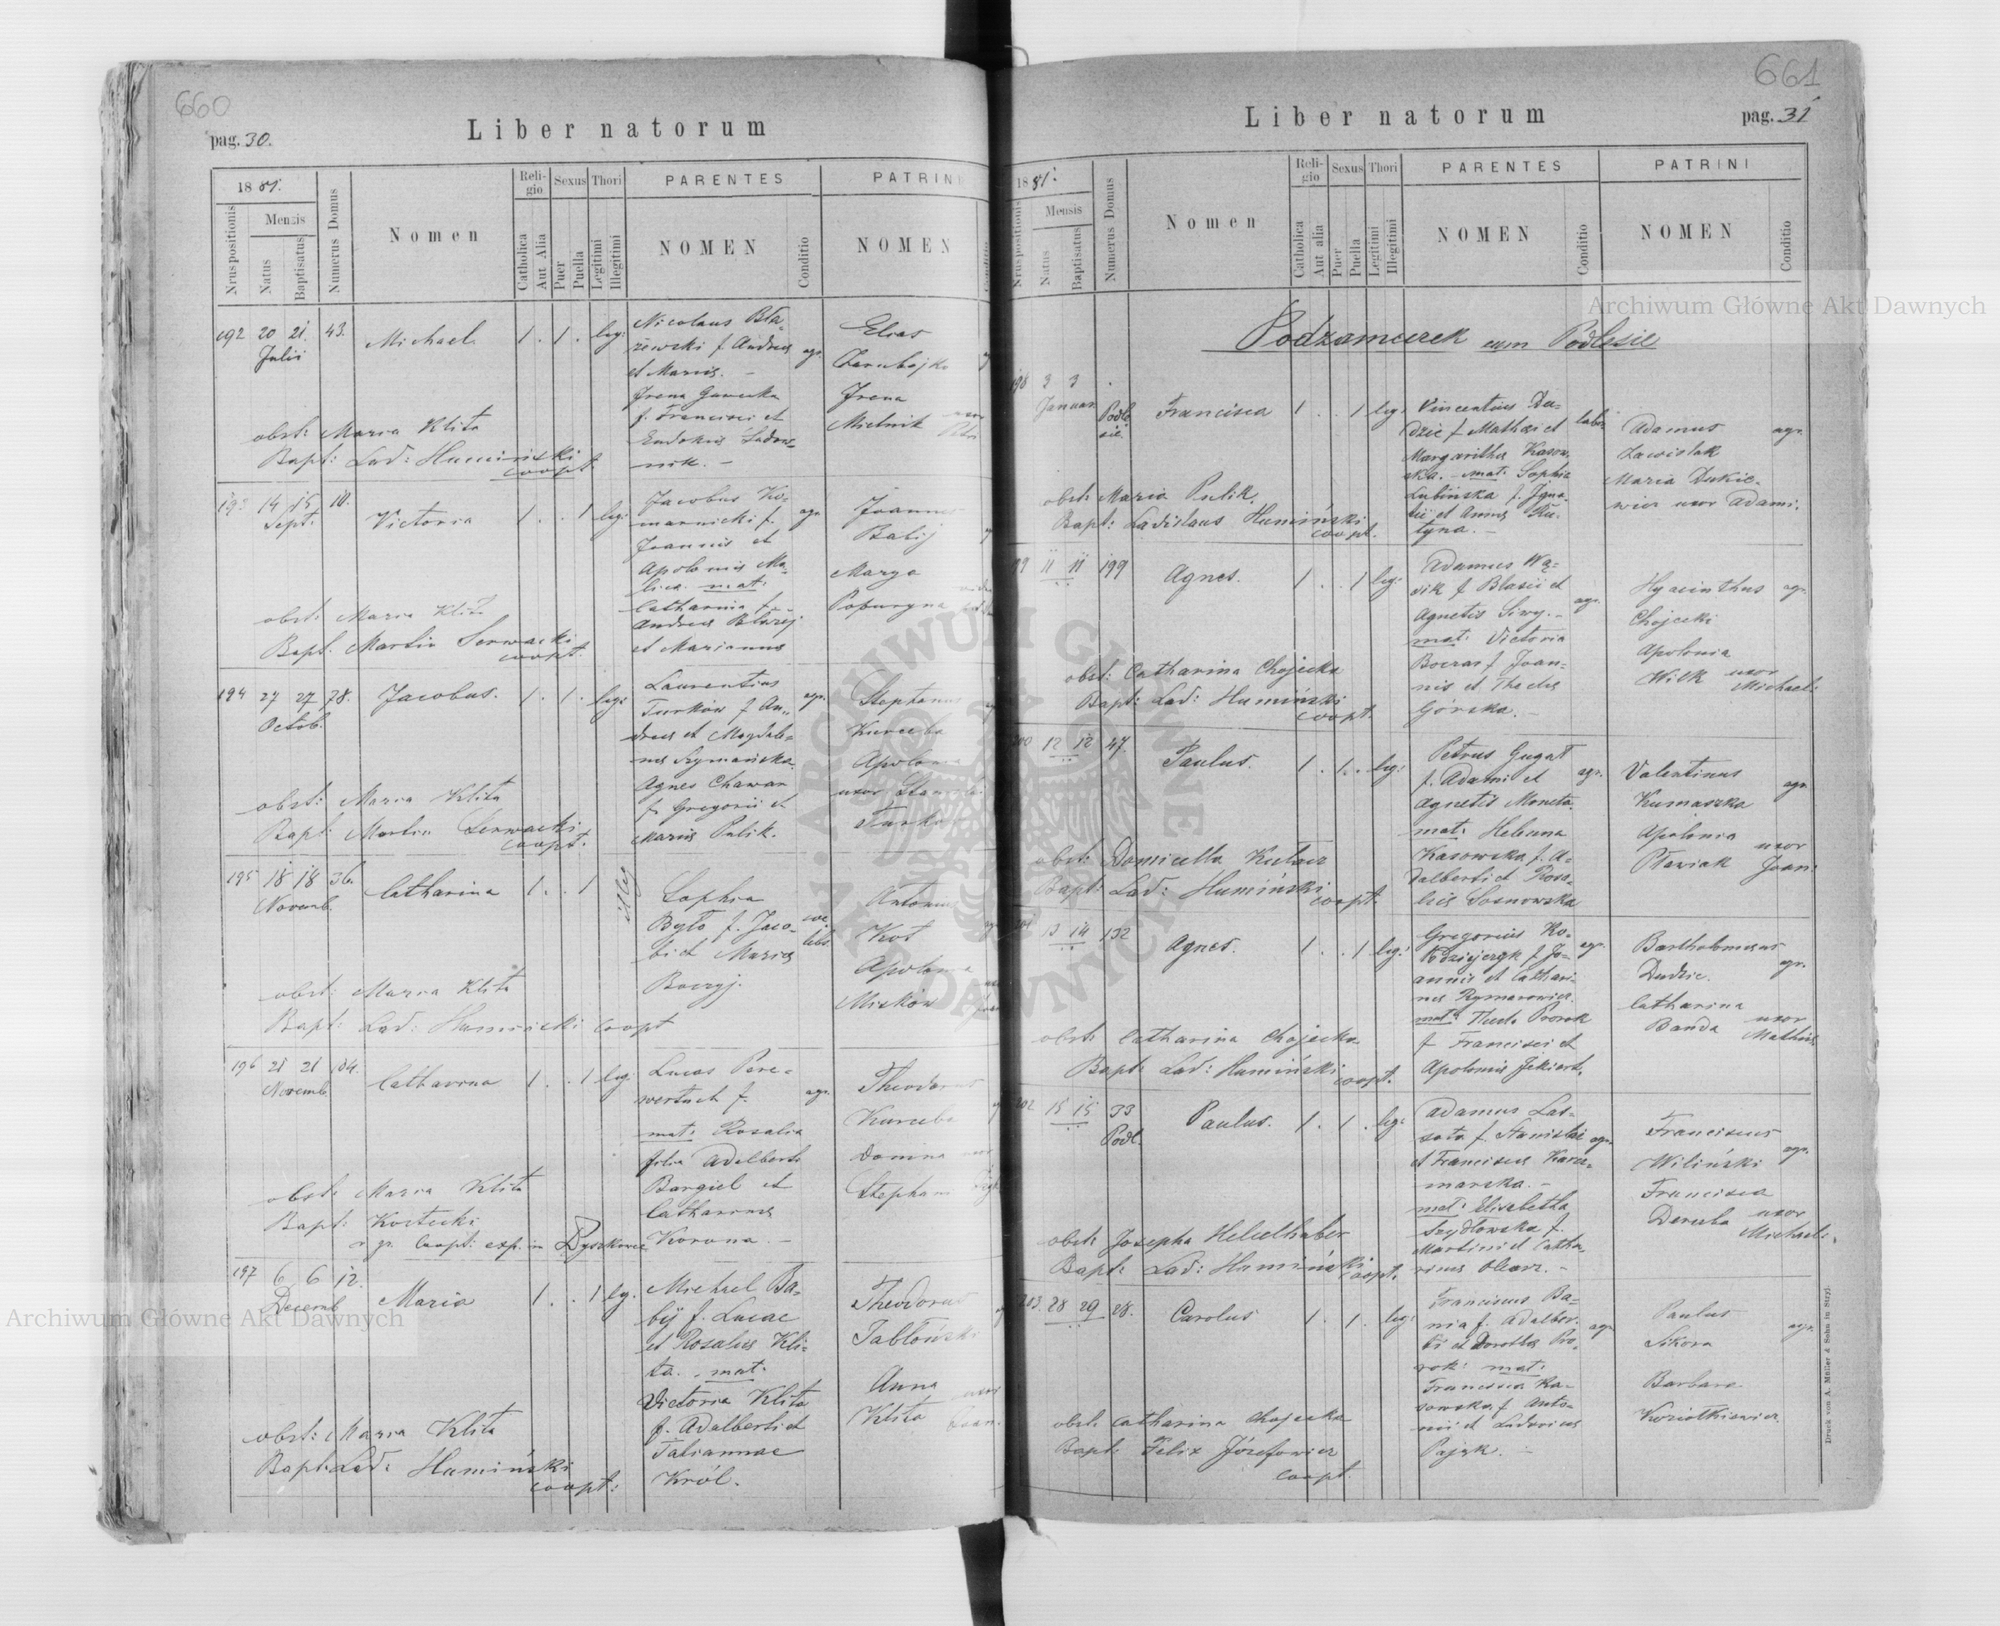 660
pag. 30.
Liber natorum
1881.
Nrus positionis
Mensis
Natus
Baptisatus
Numerus Domus
Nomen
Religio
Catholica
Aut Alia
Sexus
Puer
Puella
Thori
Legitimi
Illegitimi
PARENTES
NOMEN
Conditio
PATRINI
NOMEN
192 20 21. 43. Michael 1 . 1 . leg:
Julii
Nicolaus Bła-
żewski f. Andreae agr.
et Mariae. —
Irena
f. Francisci et
Elias
Irena
Mielnik uxor
obst: Maria Klita
Bapt: Lad: Humiński
coopt.
193 14 15 10. Victoria 1 . . 1 leg:
Sept.
Jacobus Ko-
marnicki f. agr.
Joannis et
Apoloniae Ma-
lica. mat:
Catharina f.
Andreae Błażej
et Mariannae
Joannes
Babij
Marya
obst: Maria Klita
Bapt: Martin Serwacki
coopt.
194 27 27 78. Jacobus. 1 . 1 . leg:
Octob.
Laurentius
Turków f. An- agr.
dreae et Magdale-
nae Szymańska.
Agnes Chawan
f. Gregorii et
Mariae Pulik.
Stephanus
Apolonia
uxor
obst: Maria Klita
Bapt: Martin Serwacki
coopt.
195 18 18 36. Catharina 1 . . 1 illeg
Novemb.
Sophia
Była f. Jaco-
bi et Mariae
Antonius
Kot
Apolonia
Misków
obst: Maria Klita
Bapt: Lad: Humiński coopt
196 21 21 104. Catharina 1 . . 1 leg
Novemb.
Lucas Pere-
wertuch f. agr.
mat: Rosalia
filia Adalberti
Bargiel et
Catharinae
Korona. —
Theodorus
Domina
Stephani
obst: Maria Klita
Bapt: Kostecki
r. gr. Coopt: exp. in Byczkowce
197 6 6 12. Maria 1 . . 1 leg.
Decemb
Michael Ba-
bij f. Lucae
et Rosaliae Kli-
ta. mat:
Victoria Klita
f. Adalberti et
Tatiannae
Król.
Theodorus
Jabłoński
Anna
Klita
obst: Maria Klita
Bapt: Lad: Humiński
coopt:
661
Liber natorum
pag. 31
1881.
Nrus positionis
Mensis
Natus
Baptisatus
Numerus Domus
Nomen
Religio
Catholica
Aut alia
Sexus
Puer
Puella
Thori
Legitimi
Illegitimi
PARENTES
NOMEN
Conditio
PATRINI
NOMEN
Conditio
Podzameczek cum Podlesie
198 3 3 . Francisca 1 . . 1 leg:
Januar. Podle-
sie
Vincentius Du-
dzic f. Mathaei et
Margarithae Kasow-
ska. mat: Sophia
Lubińska f. Igna-
tii et Annae
Adamus agr.
Zawiślak
Maria Dukie-
wicz uxor Adami.
obst: Maria Pulik.
Bapt: Ladislaus Humiński
coopt.
199 11 11 199 Agnes. 1 . . 1 leg:
Adamus Wą-
sik f. Blasii et
Agnetis Siwy. — agr.
mat: Victoria
Boczar f. Joan-
nis et Theclae
Górska. —
Hyacinthus agr.
Chojecki
Apolonia
Wilk uxor
Michael:
obst: Catharina Chojecka
Bapt: Lad: Humiński
coopt.
200 12 12 47. Paulus. 1 . 1 . leg:
Petrus Gugat
f. Adami et agr.
Agnetis Moneta.
mat: Helena
Kasowska f. A-
dalberti et Rosa-
liae Sosnowska
Valentinus
Kumaszka agr
Apolonia
Ptaśniak uxor
Joan:
obst: Domicella Kulasz
Bapt: Lad: Humiński
coopt:
201 13 14 132 Agnes. 1 . . 1 leg:
Gregorius Ko-
łodziejczyk f. Jo- agr.
annis et Cathari-
nae Rymarowicz.
mat: Thecla Prorok
f. Francisci et
Apoloniae
Bartholomaeus
Dudzic. agr.
Catharina
Banda uxor
Mathiae
obst: Catharina Chojecka
Bapt: Lad: Humiński
coopt.
202 15 15 33 Paulus. 1 . 1 . leg:
Podl.
Adamus Las-
sota f. Stanislai agr.
et Franciscae Karcz-
marska. —
mat: Elisabetha
Szydłowska f.
Martini et Catha-
rinae
Franciscus
Wiliński agr.
Francisca
Dereba uxor
Michael:
obst: Josepha
Bapt: Lad: Humiński
coopt.
203. 28 29 28. Carolus 1 . 1 . leg:
Franciscus Ba-
nia f. Adalber- agr.
ti et Dorotheae Pro-
rok: mat:
Francisca Ka-
sowska f. Anto-
nii et Ludovicae
Pająk. —
Paulus
Sikora agr.
Barbara
obst: Catharina Chojecka
Bapt: Felix Józefowicz
coopt.
Druck von A. Müller & Sohn in Stryj.
Archiwum Główne Akt Dawnych
Archiwum Główne Akt Dawnych
ARCHIWUM GŁÓWNE AKT DAWNYCH